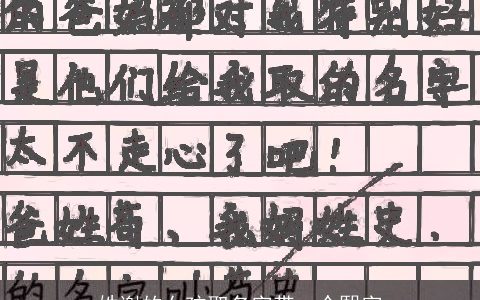 爸妈都对我特别好
是他们给我取的名字
太不走心了吧！
爸姓苟，我妈姓史，
的名字叫苟史
姓谢的女孩取名字带